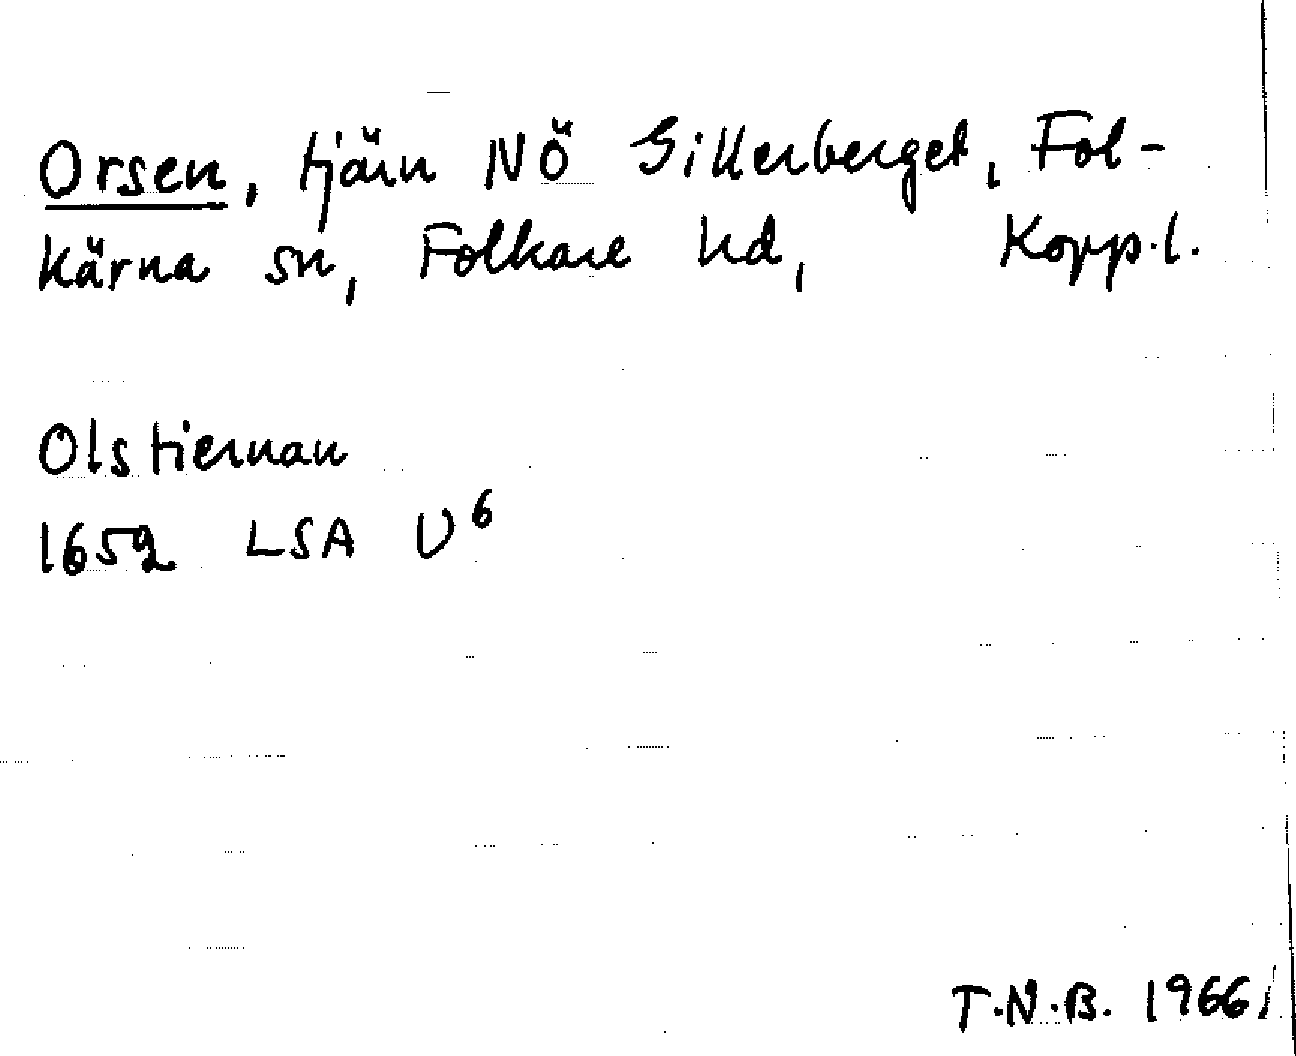 Orsen, tjärn NÖ Sikerberget, Fol-
kärna sn, Folkare hd, Kopp.l.
Olstiernan
1652 LSA U6
T.N.B. 1966